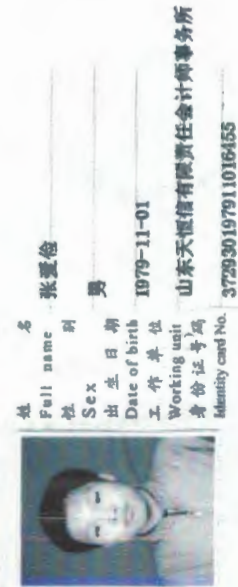 姓 名
Full name 张爱俭
性 别
Sex 男
出 生 日 期
Date of birth 1979-11-01
工 作 单 位
Working unit 山东天恒信有限责任会计师事务所
身 份 证 号 码
Identity card No. 372930197911016455